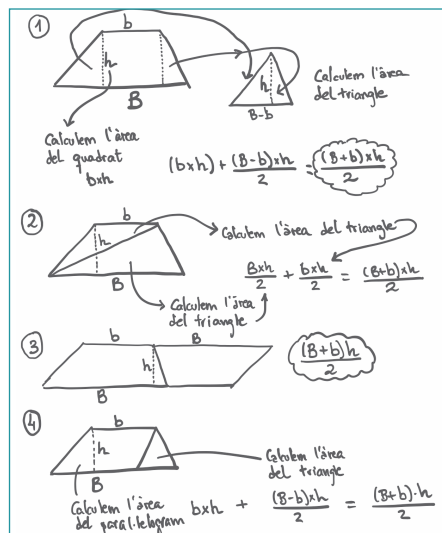 1
b
h
B
h
B-b
Calculem l'àrea
del triangle
Calculem l'àrea
del quadrat
bxh
(bxh) + (B-b)xh/2 = (B+b)xh/2
2
b
h
B
Calculem l'àrea del triangle
Bxh/2 + bxh/2 = (B+b)xh/2
Calculem l'àrea
del triangle
3
b
B
h
B
(B+b)h/2
4
b
h
B
Calculem l'àrea
del triangle
Calculem l'àrea
del paral·lelogram
bxh + (B-b)xh/2 = (B+b)·h/2